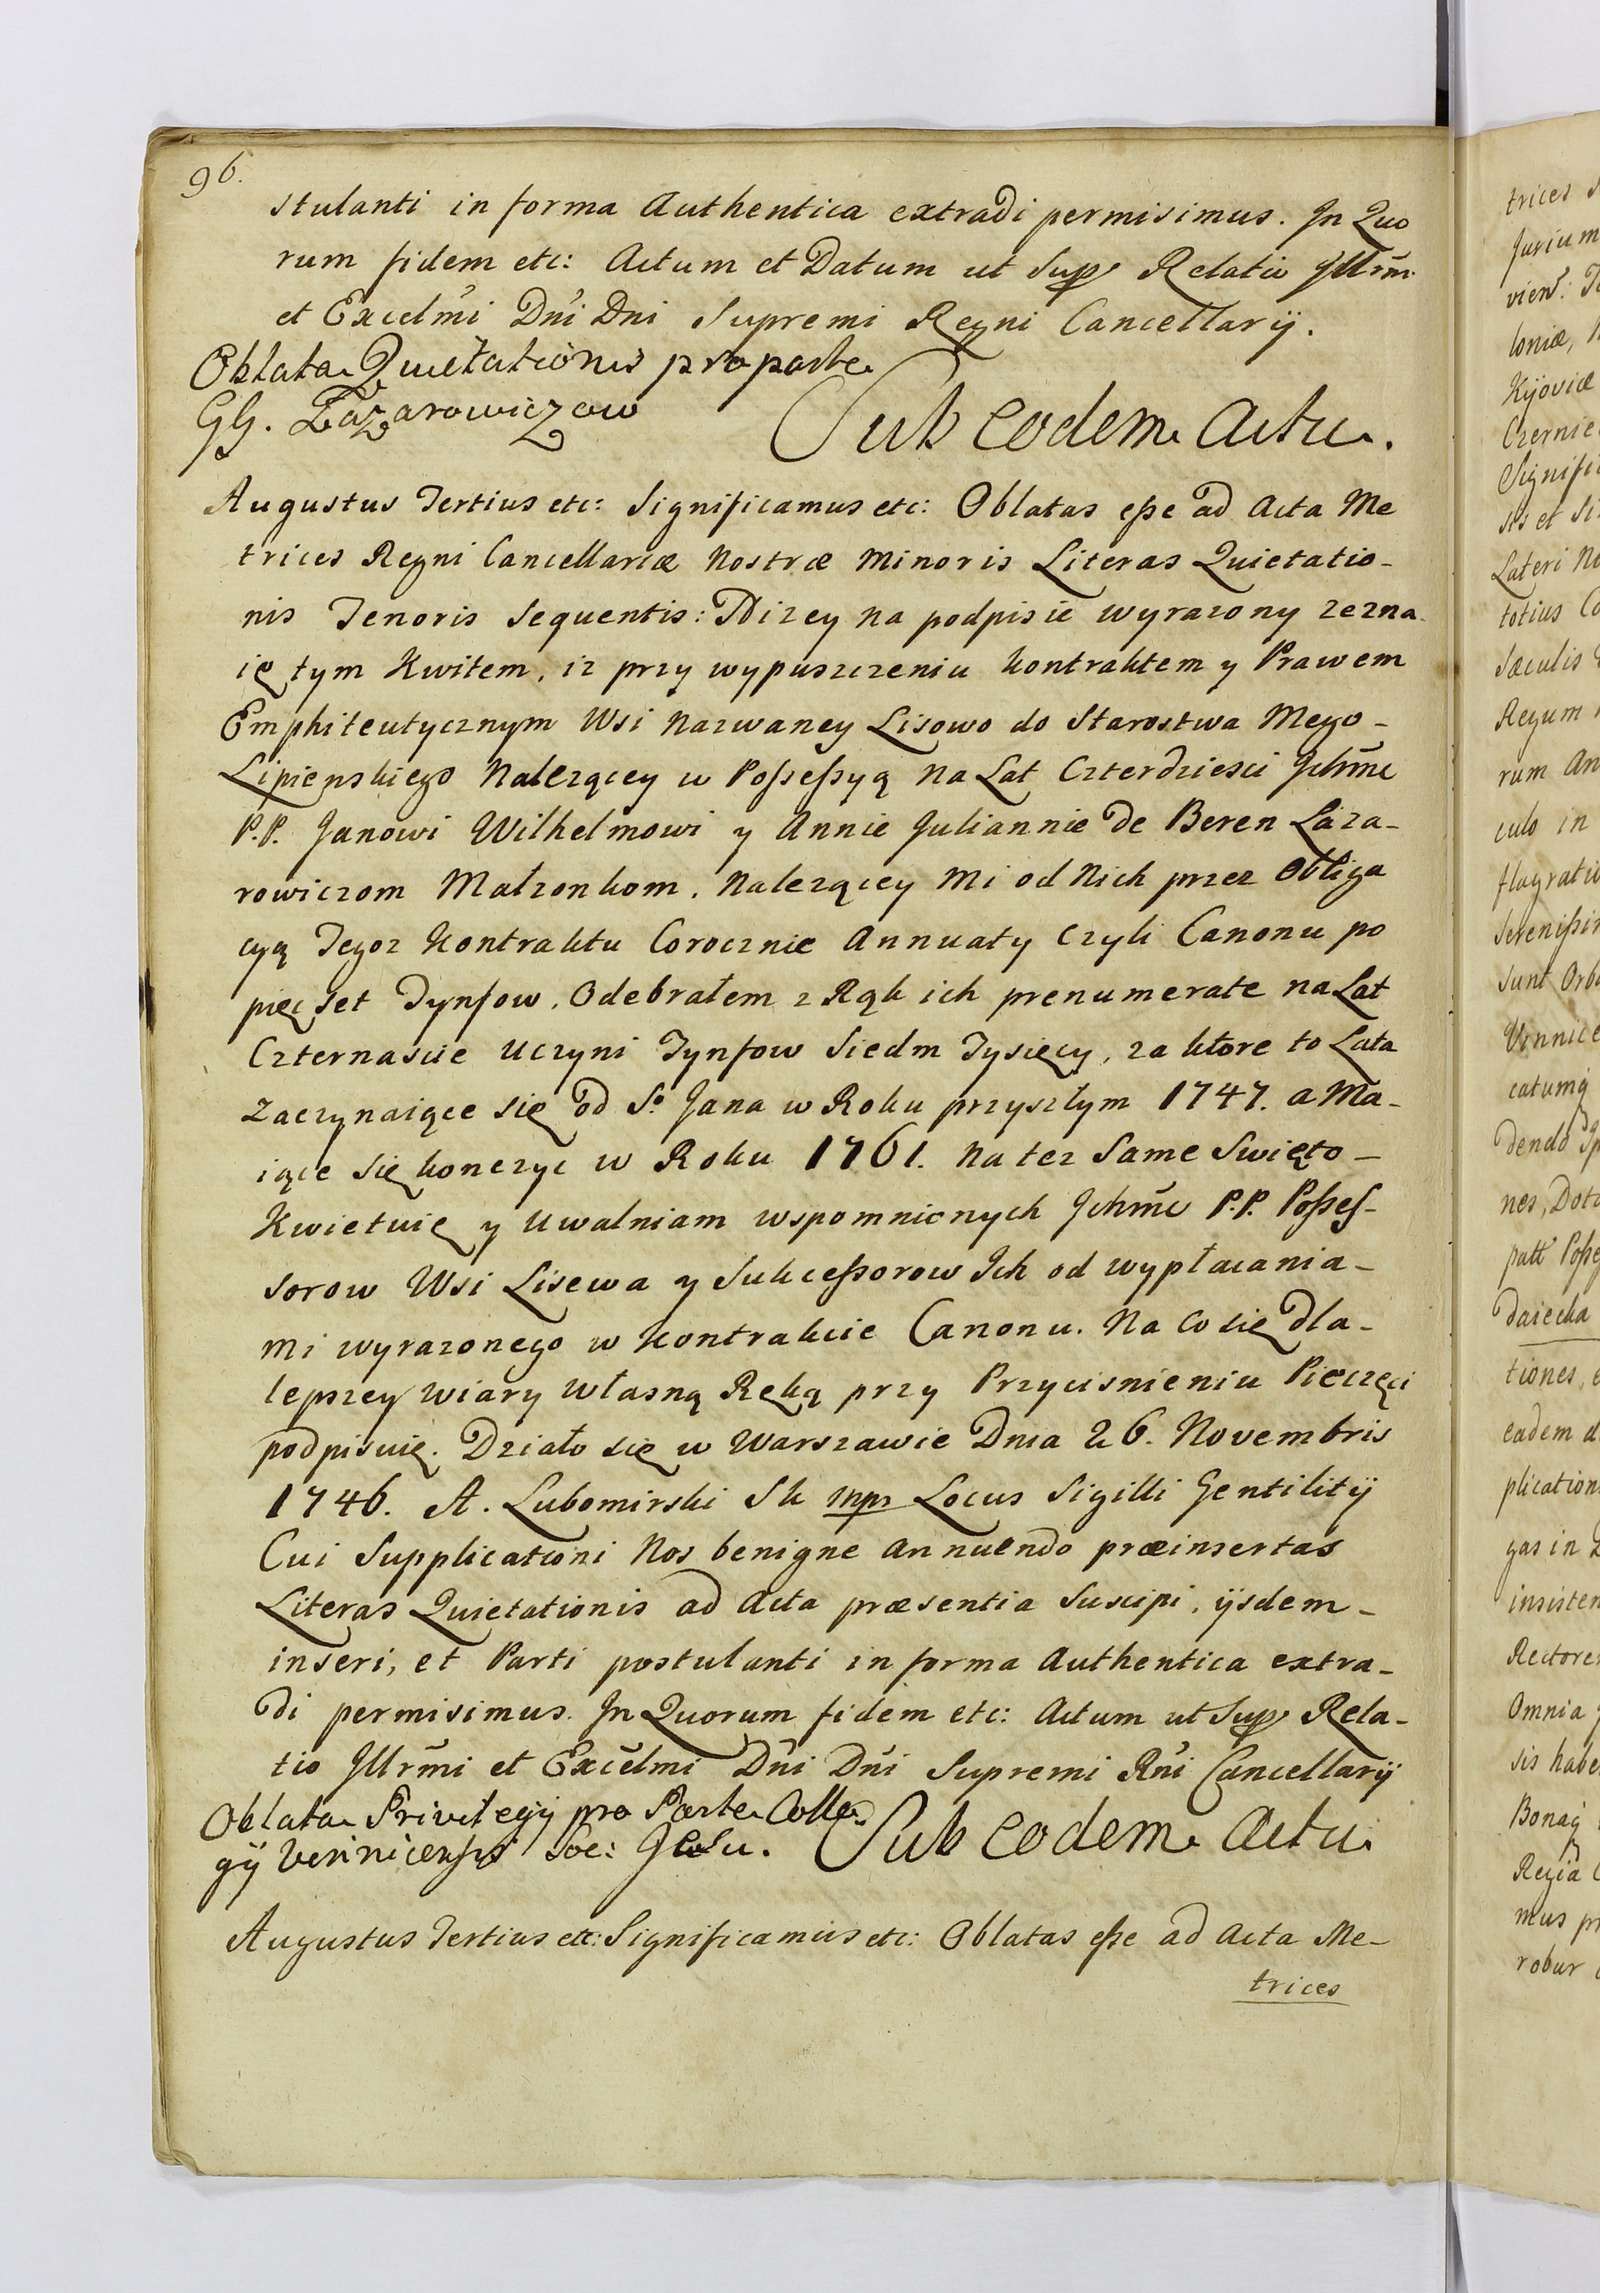 96.
stulanti in forma Authentica extradi permisimus. In Quo
rum fidem etc: Actum et Datum ut Supp Relatio Illrmi
et Excelmi Dni Dni Supremi Regni Cancellarÿ.
Oblata Quietationis pro parte
GG. Łazarowiczow
Sub eodem Actu.
Augustus Tertius etc: Significamus etc: Oblatas eße ad Acta Me
trices Regni Cancellariæ Nostræ Minoris Literas Quietatio-
nis Tenoris Sequentis: Nizey na podpisie wyrazony zezna
ię tym Kwitem, iz przy wypuszczeniu kontraktem y Prawem
Emphiteutycznym Wsi Nazwaney Lisowo do Starostwa Mego-
Lipienskiego Nalezącey w Poßeßyą na Lat Czterdziesci Ichmc
P.P. Janowi Wilhelmowi y Annie Juliannie de Beren Laza-
rowiczom Małzonkom, Nalezącey Mi od Nich przez Obliga
cyą Tegoz Kontraktu Corocznie Annuaty Czyli Canonu po
pięcset Tynfow, Odebrałem z Rąk ich prenumerate na Lat
Czternascie Uczyni Tynfow Siedm Tysięcy, za ktore to Lata
Zaczynaiące się od So Jana w Roku przyszłym 1747. a Ma-
iące się konczyc w Roku 1761. Na tez Same Swięto-
Kwietuię y Uwalniam wspomnionych Ichmc P.P. Poßes-
sorow Wsi Lisewa y Sukceßorow Ich od wypłacania-
Mi wyrazonego w Kontrakcie Canonu. Na Co się Dla-
lepszey Wiary Własną Ręką przy Przycisnieniu Pieczęci
podpisuię. Działo się w Warszawie Dnia 26. Novembris
1746. A. Lubomirski Sk mpr Locus Sigilli Gentilitÿ
Cui Supplicationi Nos benigne annuendo præinsertas
Literas Quietationis ad Acta præsentia Suscipi, ÿsdem-
inseri, et Parti postulanti in forma Authentica extra-
di permisimus. In Quorum fidem etc: Actum ut Supp Rela-
tio Illrmi et Excelmi Dni Dni Supremi Rni Cancellarÿ
Oblata Privilegÿ pro Parte Colle-
gÿ Vinnicensis Soc: Jesu.
Sub eodem Actu
Augustus Tertius etc: Significamus etc: Oblatas eße ad Acta Me-
trices
trices
Jurium
loniæ,
Kÿoviæ
Czernie
Signifi
sis et Si
Lateri No
totius Co
Sæculis
Regum
rum An
culo in
flagratio
Sereniß
sunt Orb
Vinnice
dendo
nes, Dot
tiones,
eadem d
plication
gas in
insisten
Rectore
Omnia
sis habe
Bonaq
Regia
mus pr
robur